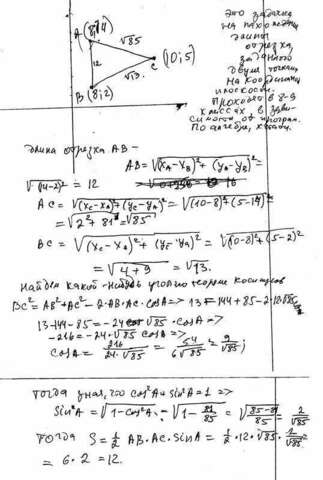 A (8;14)
√85
12
C (10;5)
√13
B (8;2)
это задачка
на нахождение
длины
отрезка,
заданного
двум точками
на координатной
плоскости.
Проходят в 8-9
классах, в зави-
симости от програм.
По алгебре, кстати.
Длина отрезка AB -
AB = √(xA-xB)²+(yA-yB)² =
√(14-2)² = 12
AC = √(xC-xA)²+(yC-yA)² = √(10-8)²+(5-14)² =
= √2²+81 = √85
BC = √(xC-xA)²+(yC-yA)² = √(10-8)²+(5-2)²
= √4+9 = √13.
Найдем какой-нибудь угол по теореме косинусов
BC² = AB²+AC²-2·AB·AC·cosA => 13 = 144+85-2·12·√85
13-144-85 = -24·√85·cosA =>
-216 = -24·√85 cosA =>
cosA = 216/24·√85 = 54/6√85 = 9/√85;
Тогда зная, что cos²A+sin²A=1 =>
sin²A = √1-cos²A = √1-81/85 = √85-81/85 = 2/√85
Тогда S = 1/2 AB·AC·sinA = 1/2·12·√85·2/√85
= 6·2 = 12.